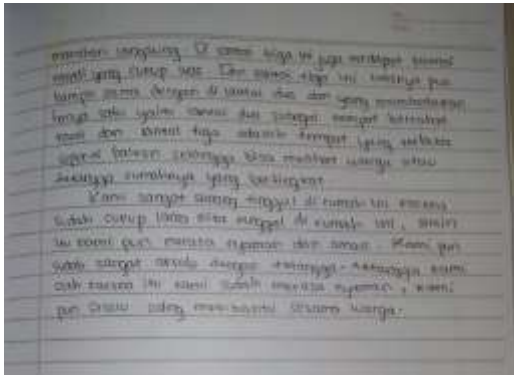 langsung. Di lantai tiga ini juga terdapat
yang cukup luas. Dan lantai tiga ini pun
hampir sama dengan di lantai dua dan yang membedakan
hanya satu yaitu lantai dua sebagai tempat
dan lantai tiga adalah tempat yang
balkon sehingga bisa melihat warga atau
tetangga rumahnya yang bertingkat.
Kami sangat senang tinggal di rumah ini karena
sudah cukup lama kita tinggal di rumah ini, selain
itu kami pun merasa nyaman dan aman. Kami pun
sudah sangat dengan tetangga-tetangga kami
oleh karena itu kami sudah merasa nyaman, kami
pun saling membantu sesama warga.